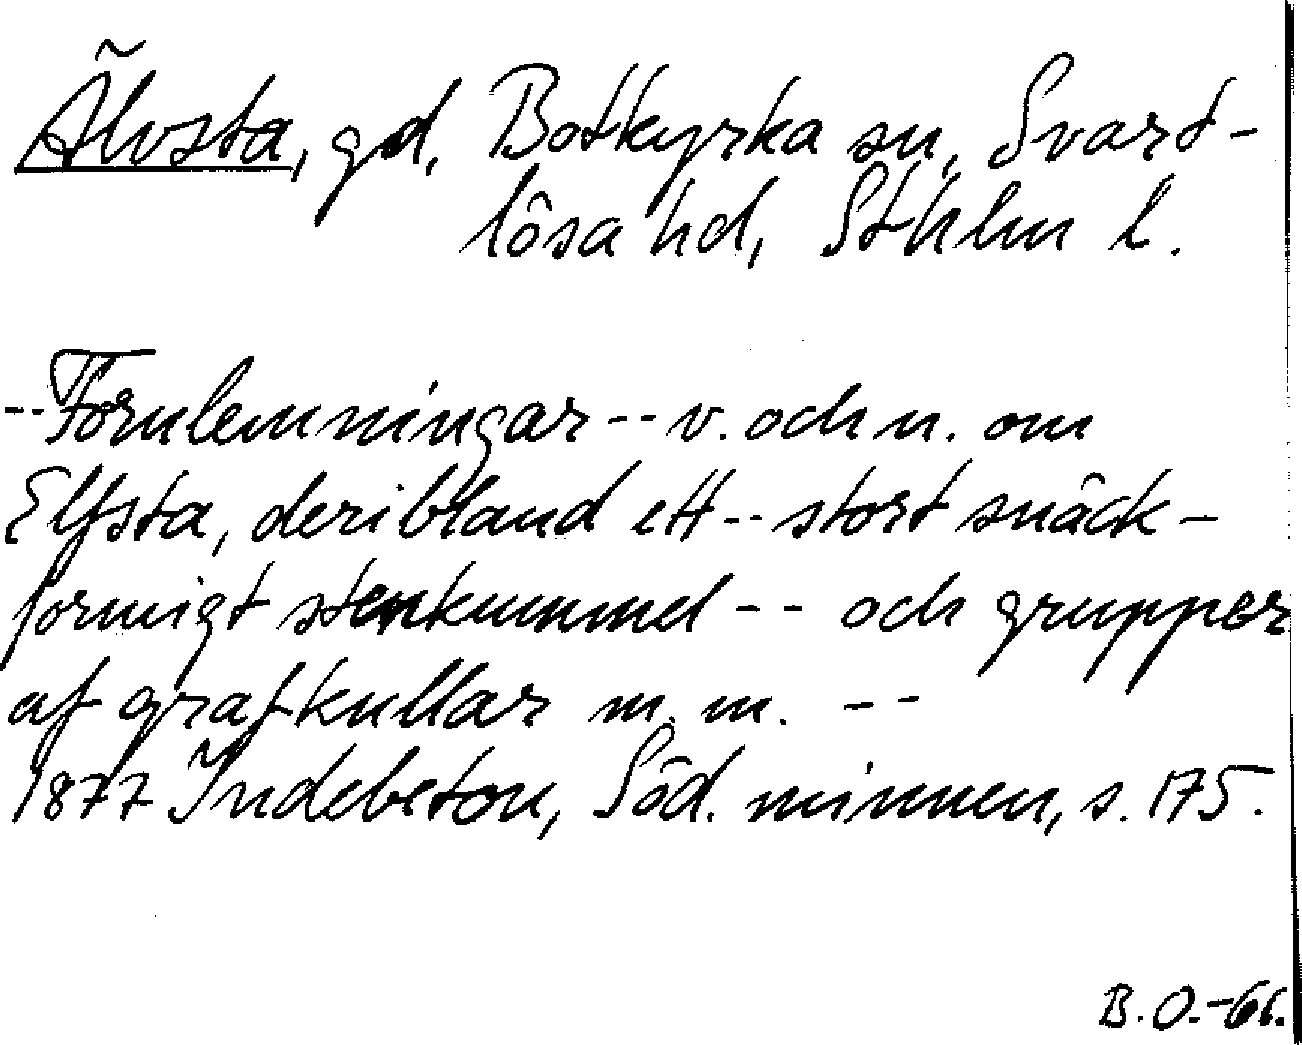 Älvsta, gd, Botkyrka sn, Svart-
lösa hd, Sthlm l.
-- Fornlemningar -- v. och n. om
Elfsta, deribland ett -- stort snäck-
formigt stenkummel -- och grupper
af grafkullar m. m. --
1877 Indebetou, Söd. minnen, s. 175.
B. O. -66.